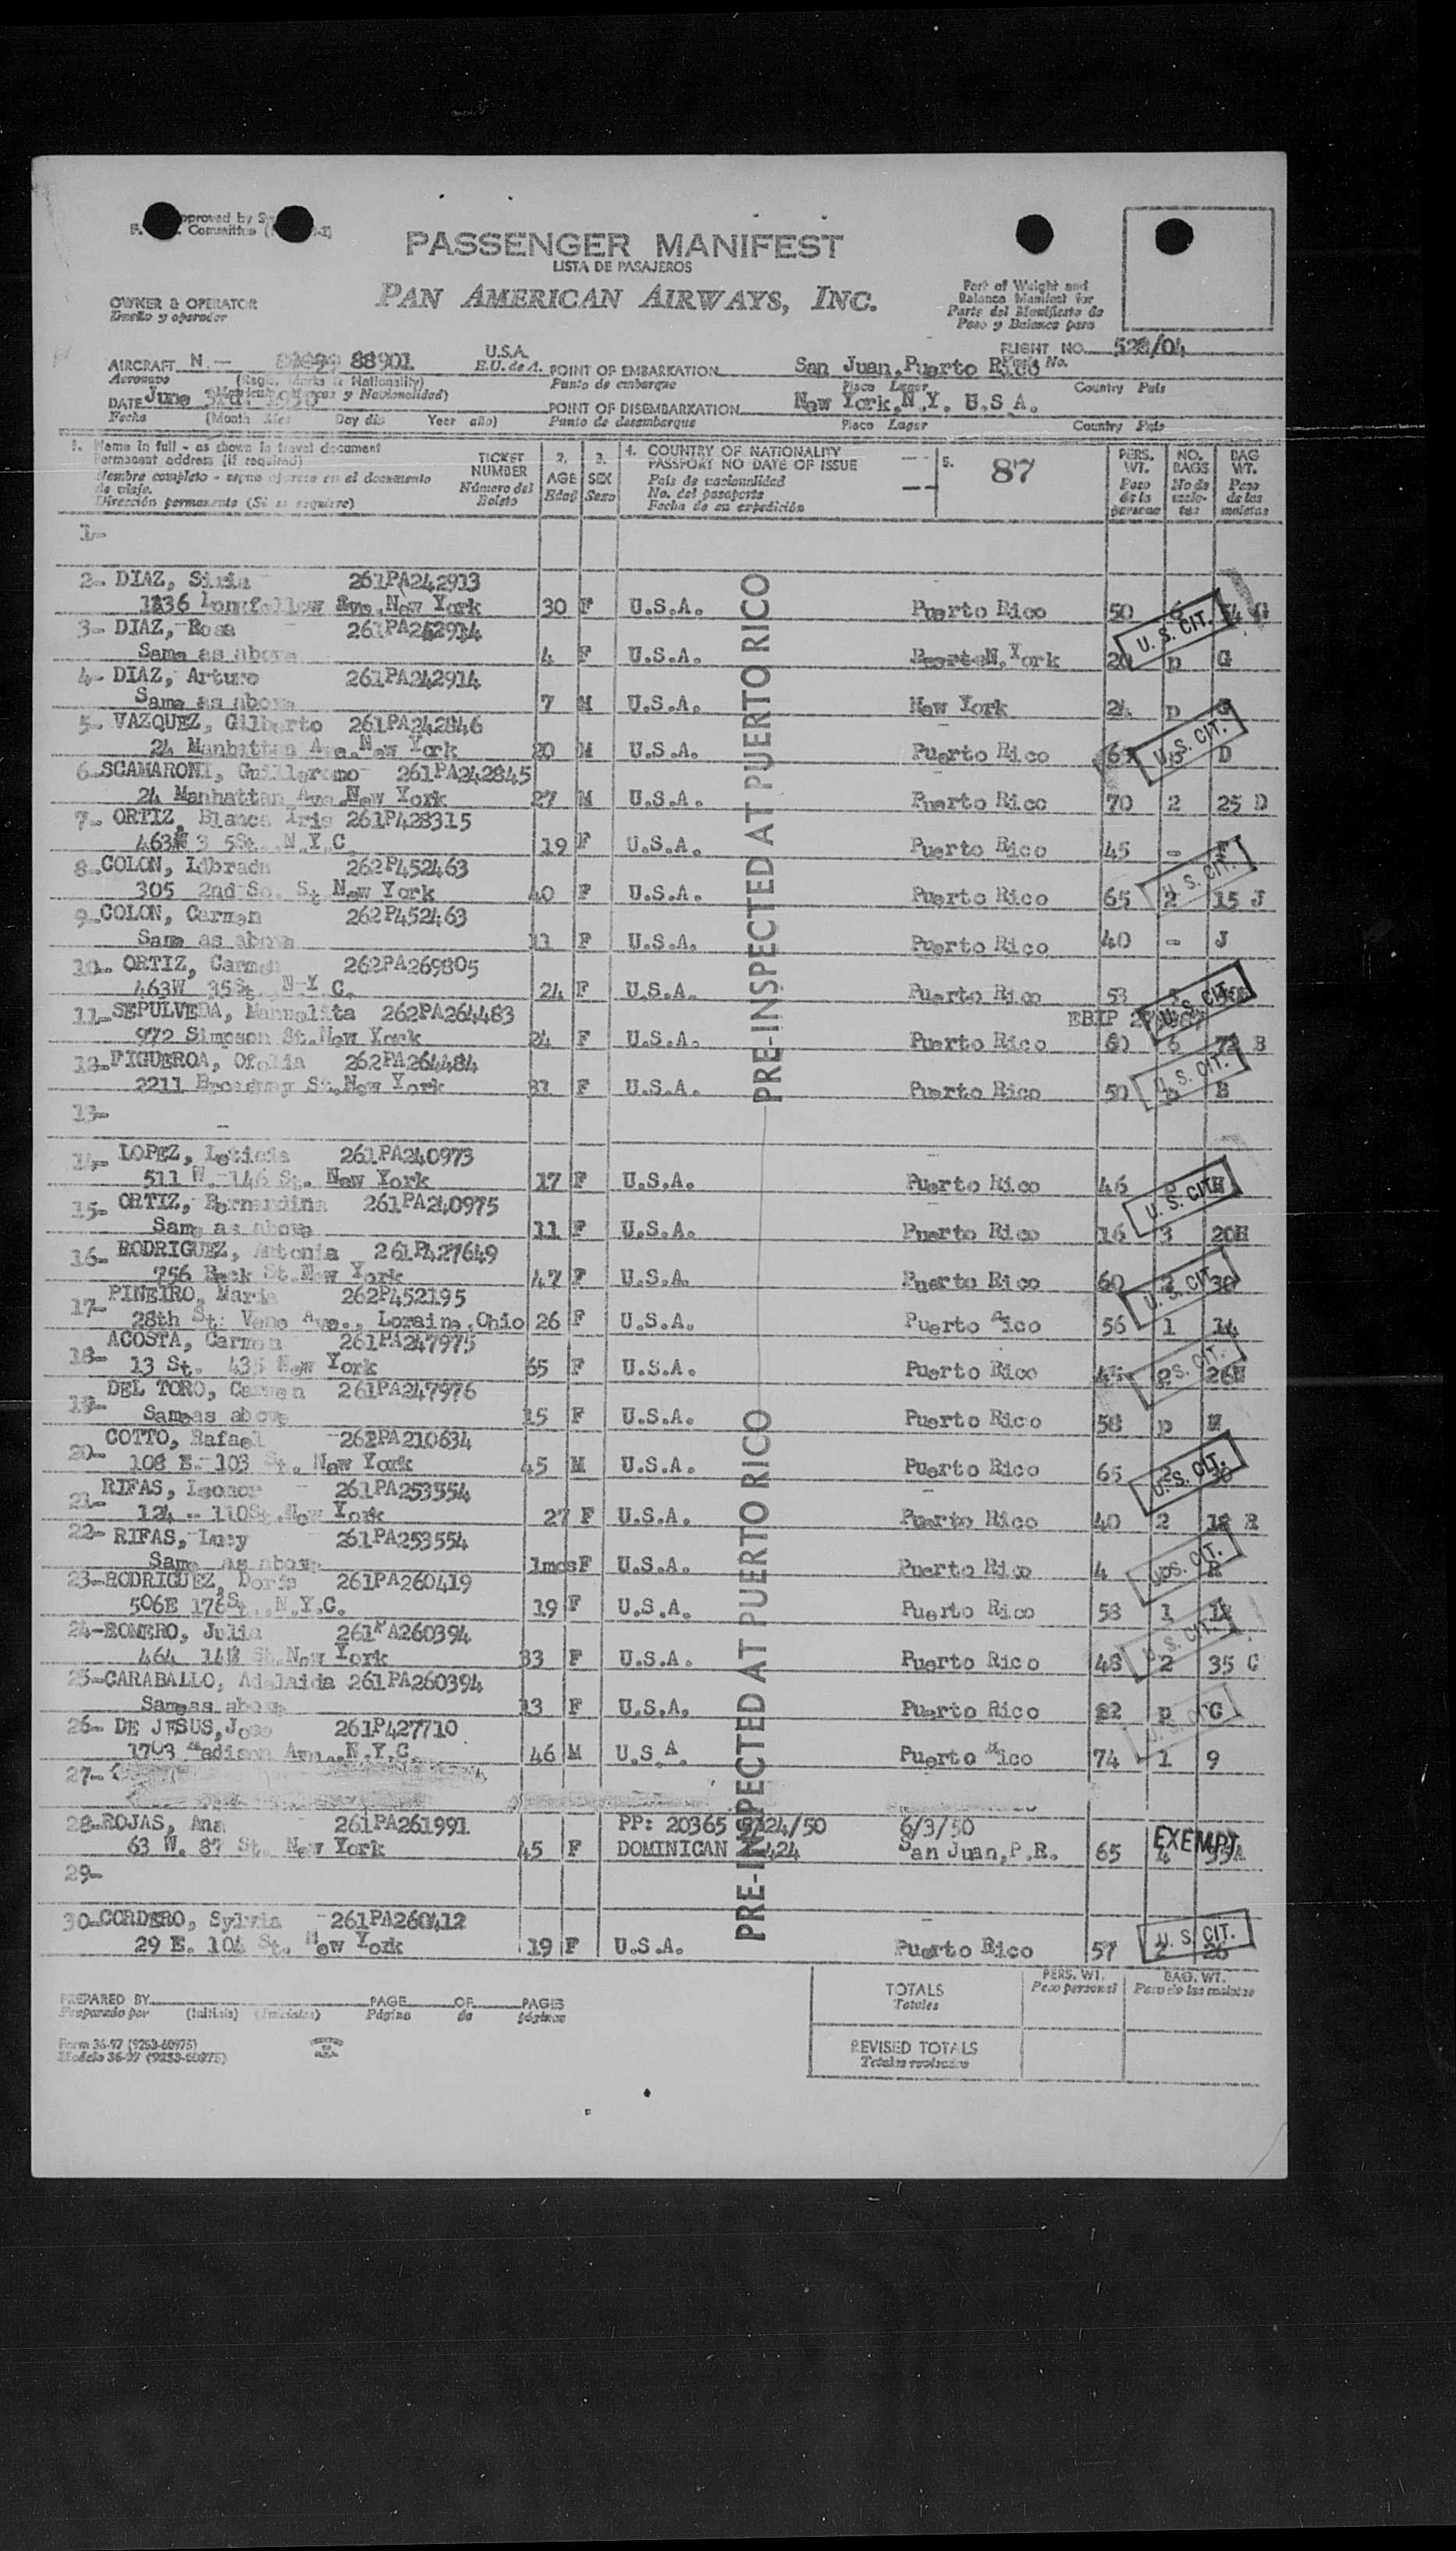 PASSENGER MANIFEST
LISTA DE PASAJEROS
PAN AMERICAN AIRWAYS, INC.
OWNER & OPERATOR
Dueño y operador
Part of Weight and
Balance Manifest for
Parte del Manifiesto de
Peso y Balance para
FLIGHT NO. 528/04
AIRCRAFT N - 88901 U.S.A. POINT OF EMBARKATION San Juan, Puerto Rico
Aeronave (Regis. Marks & Nationality) E.U. de A. Punto de embarque Place Lugar Country País
DATE June
POINT OF DISEMBARKATION New York, N.Y. U.S A.
Fecha (Month Mes Day día Year año) Punto de desembarque Place Lugar Country País
1. Name in full - as shown in travel document
Permanent address (if required)
Nombre completo - según aparece en el documento
de viaje.
Dirección permanente (Si se requiere)
TICKET
NUMBER
Número del
Boleto
2.
AGE
Edad
3.
SEX
Sexo
4. COUNTRY OF NATIONALITY
PASSPORT NO DATE OF ISSUE
País de nacionalidad
No. del pasaporte
Fecha de su expedición
5. 87
PERS.
WT.
Peso
de la
persona
NO.
BAGS
No de
BAG
WT.
Peso
de las
maletas
1-
2- DIAZ, Siria 261PA242913
1236 Longfellow Ave. New York 30 F U.S.A. Puerto Rico 50 6 G
3- DIAZ, Rosa 261PA242914
Same as above 4 F U.S.A. N. York 20 p G
4- DIAZ, Arturo 261PA242914
Same as above 7 M U.S.A. New York 24 p
5- VAZQUEZ, Gilberto 261PA242846
24 Manhattan Ave. New York 20 M U.S.A. Puerto Rico D
6-SCAMARONI, Guillermo 261PA242845
24 Manhattan Ave. New York 27 M U.S.A. Puerto Rico 70 2 25 D
7- ORTIZ, Blanca Iris 261P428315
463W 3 5St. N.Y.C 19 F U.S.A. Puerto Rico 45 -
8-COLON, Librada 262P452463
305 2nd So. St New York 40 F U.S.A. Puerto Rico 65 2 15 J
9-COLON, Carmen 262P452463
Same as above 11 F U.S.A. Puerto Rico 40 - J
10- ORTIZ, Carmen 262PA269805
463W 35St N.Y C. 24 F U.S.A. Puerto Rico 53
EBIP
11-SEPULVEDA, Manuelita 262PA264483
972 Simpson St. New York 24 F U.S.A. Puerto Rico 60 6 72 B
12-FIGUEROA, Ofelia 262PA264484
2211 Broadway St. New York 31 F U.S.A. Puerto Rico 50 p B
13-
14- LOPEZ, Leticia 261PA240973
511 W. 146 St. New York 17 F U.S.A. Puerto Rico 46 H
15- ORTIZ, Bernardina 261PA240975
Same as above 11 F U.S.A. Puerto Rico 16 3 20H
16- RODRIGUEZ, Antonia 261P427649
756 Beck St. New York 47 F U.S.A. Puerto Rico 60 2 30
17- PINEIRO, Maria 262P452195
28th St. Ave., Loraine, Ohio 26 F U.S.A. Puerto Rico 56 1 14
18- ACOSTA, Carmen 261PA247975
13 St. 435 New York 65 F U.S.A. Puerto Rico 45 2 26N
19- DEL TORO, Carmen 261PA247976
Sameas above 15 F U.S.A. Puerto Rico 58 p N
20- COTTO, Rafael 262PA210634
108 E. 103 St. New York 45 M U.S.A. Puerto Rico 65 2
21- RIFAS, Leonor 261PA253554
124 - 110St. New York 27 F U.S.A. Puerto Rico 40 2 18 R
22- RIFAS, Lucy 261PA253554
Same as above 1mos F U.S.A. Puerto Rico 4 R
23-RODRIGUEZ, Doris 261PA260419
506E 176St. N.Y.C. 19 F U.S.A. Puerto Rico 58 1
24-ROMERO, Julia 261PA260394
464 148 St. New York 33 F U.S.A. Puerto Rico 48 2 35 C
25-CARABALLO, Adelaida 261PA260394
Sameas above 13 F U.S.A. Puerto Rico p C
26- DE JESUS, Jose 261P427710
1703 Madison Ave. N.Y.C. 46 M U.S.A. Puerto Rico 74 1 9
27-
28-ROJAS, Ana 261PA261991 PP: 20365 /24/50 6/3/50
63 W. 87 St. New York 45 F DOMINICAN 424 San Juan, P.R. 65 4
29-
30-CORDERO, Sylvia 261PA260412
29 E. 104 St. New York 19 F U.S.A. Puerto Rico 57 2 26
PRE-INSPECTED AT PUERTO RICO
PRE-INSPECTED AT PUERTO RICO
U. S. CIT.
U. S. CIT.
U. S. CIT.
U. S. CIT.
U. S. CIT.
U. S. CIT.
U. S. CIT.
U. S. CIT.
U. S. CIT.
U. S. CIT.
EXEMPT
U. S. CIT.
PREPARED BY PAGE OF PAGES
Preparado por (Initials) (Iniciales) Página de páginas
TOTALS
Totales
PERS. WT.
Peso personal
BAG. WT.
Peso de las maletas
REVISED TOTALS
Totales revisados
Form 36-97 (9253-60975)
Modelo 36-97 (9253-60975)